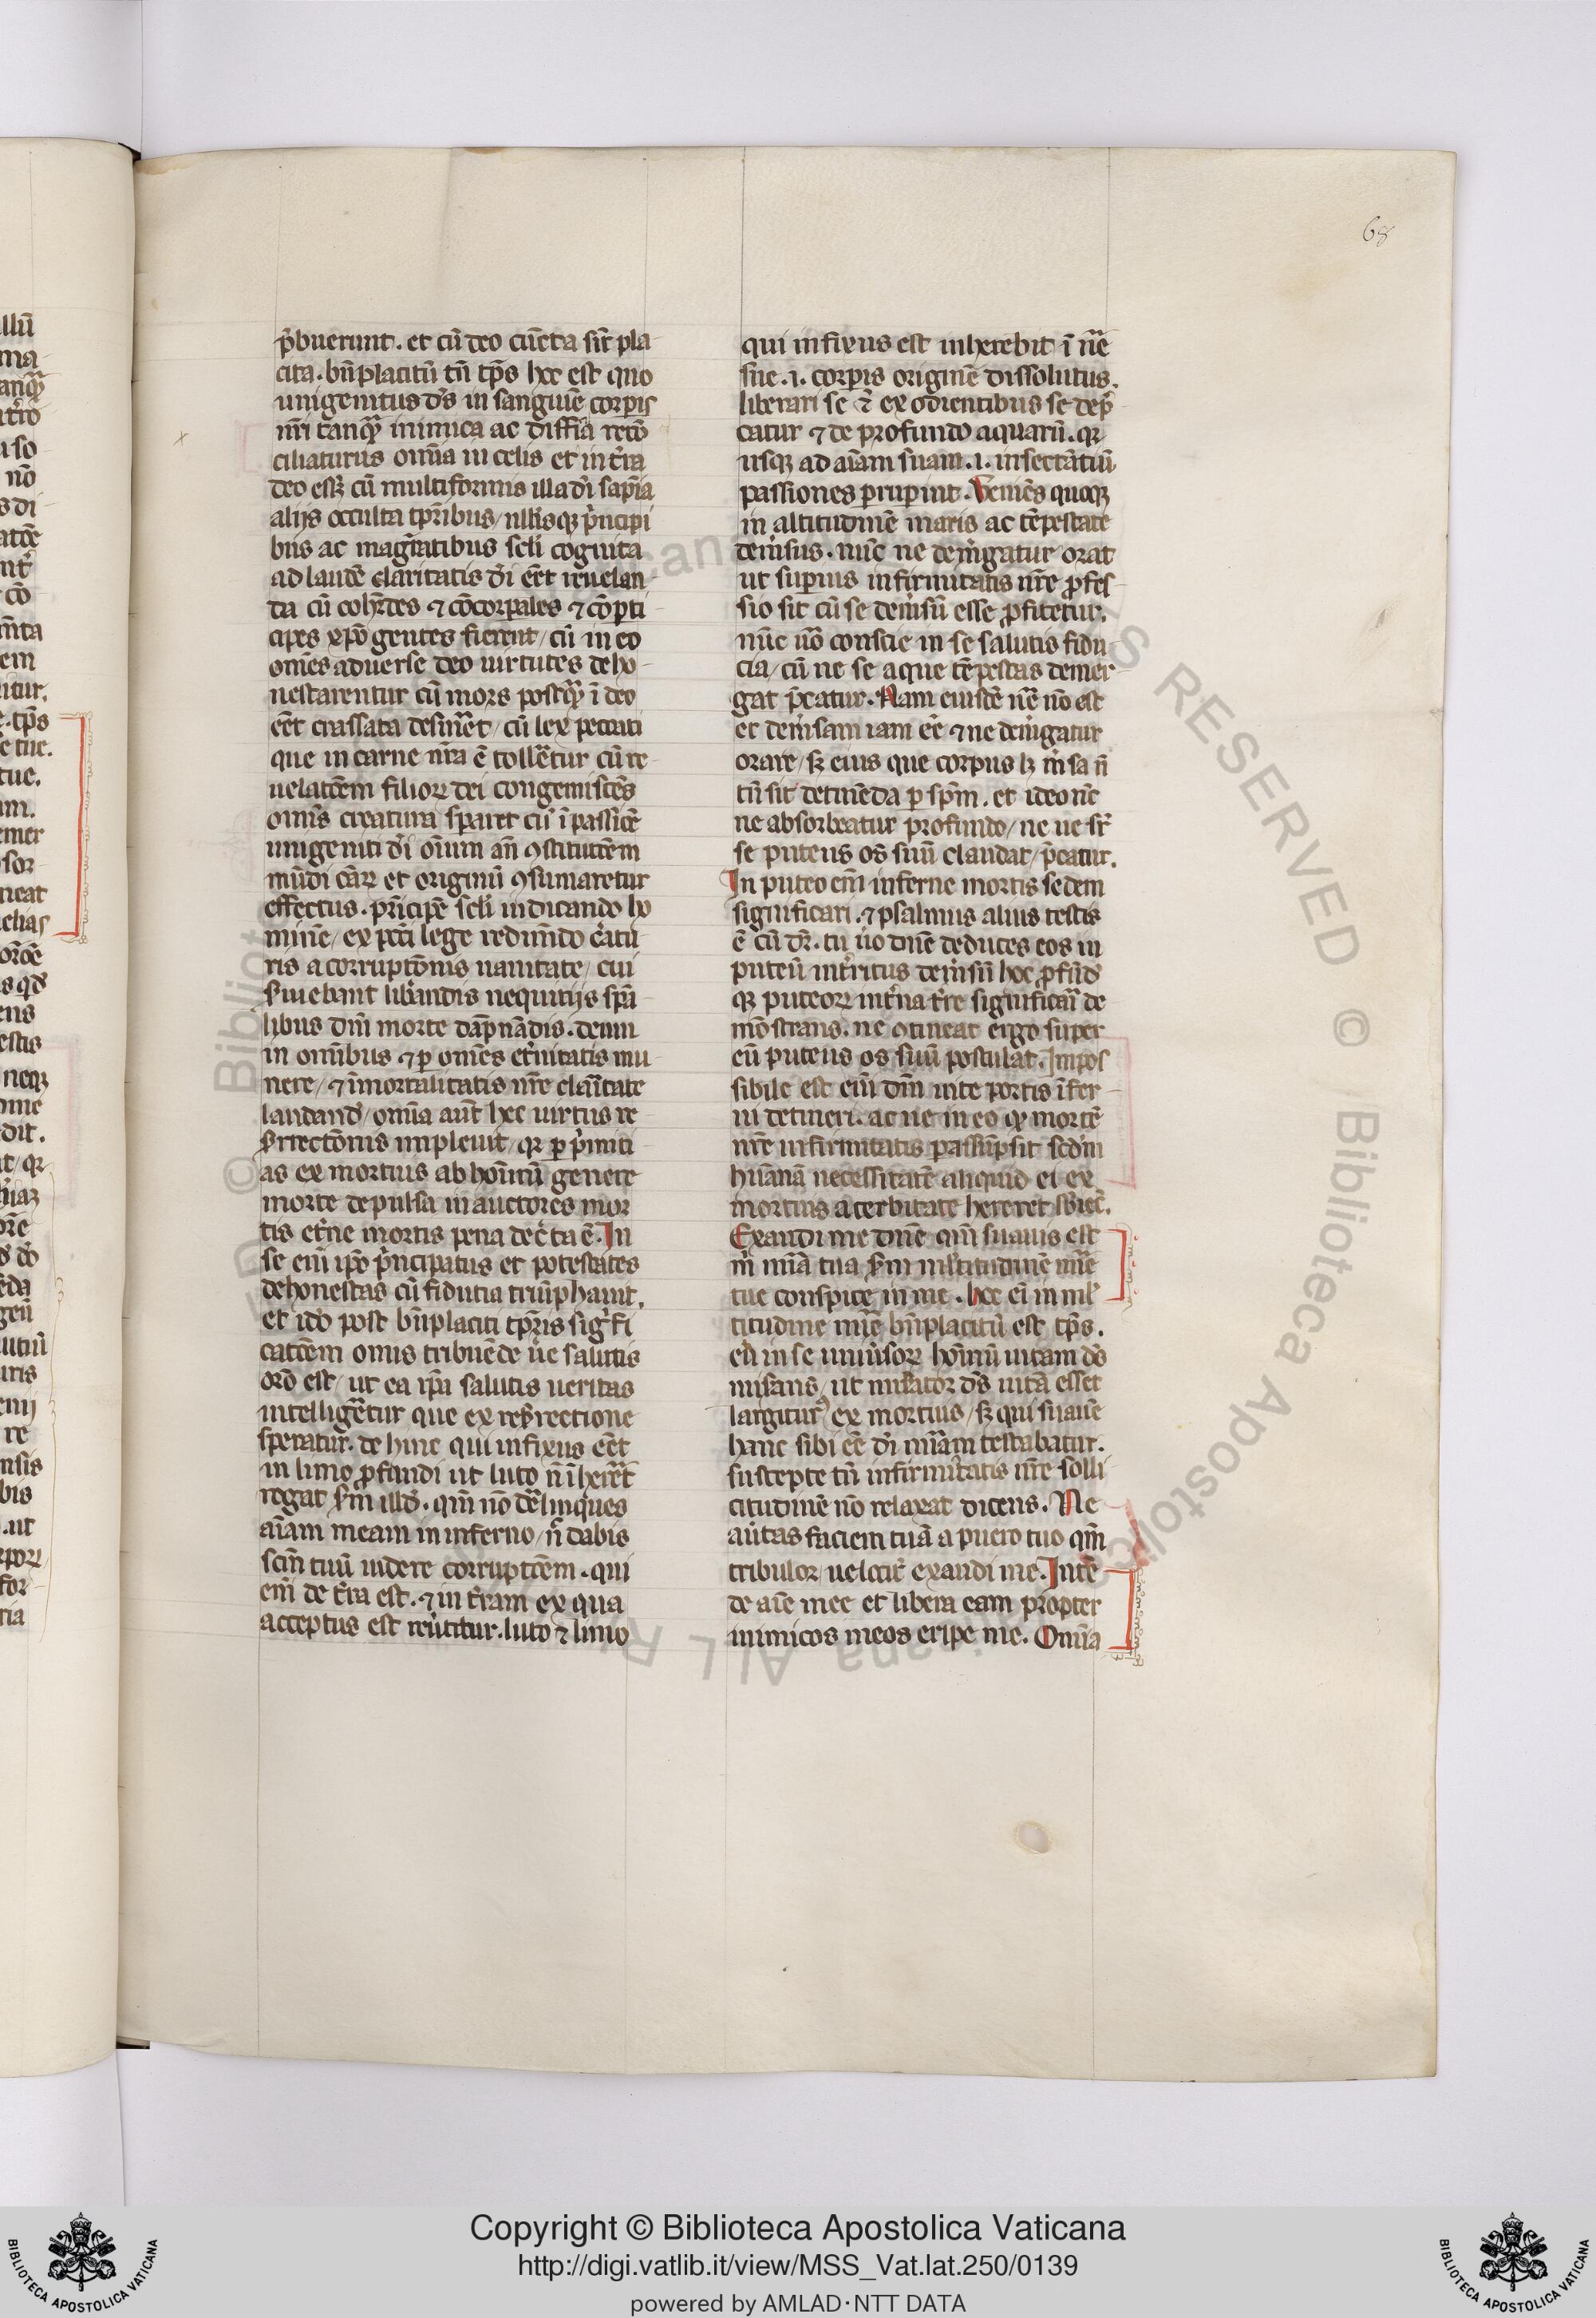 68
p̄buerunt. et cū deo cūcta sīt pla
cita. bn̄placitū tn̄ tp̄s hec est quo
unigenitus d̄s in sanguīe corpis
nr̄i tanqȝ inimica ac diffīa recō
ciliaturus om̄ia in celis et in t̄ra
deo esȝ cū multiformis illa dī sap̄ia
alijs occulta tp̄ribus/ nllīsqȝ p̄ncipi
bus ac magr̄atibus scl̄i cognita
ad laudē claritatis dī eēt reuelan-
da cū coh̄rdes ⁊ cōcorꝑales ⁊ cōꝑti
cipes xp̄o gentes fierent/ cū in eo
om̄es aduerse deo uirtutes deho-
nestarentur cū mors postqȝ ī deo
eēt crassata desin̄et/ cū lex peccati
que in carne nr̄a ē toll̄etur cū re-
uelatōem filioꝝ dei congemiscēs
om̄is creatura sꝑaret cū ī passiōe
unigeniti dī oīum an̄ ꝯstitutōem
mūdi cār̄ et originū ꝯsumaretur
effectus. p̄ncipē scl̄i iudicando ho
minē/ ex pctī lege redimēdo c̄atu-
ris a corruptōnis uanitate/ cui
s̄uiebant lib̄andis nequitijs spi̅a
libus dn̄i morte dāpnādis. demū
in om̄ibus ⁊ ꝑ om̄es et̄nitatis mu-
nere/ ⁊ īmortalitatis nr̄e clar̄itate
laudand̄/ om̄ia aūt hec uirtus re-
s̄rrectōnis impleuit/ qꝛ ꝑ p̄miti
as ex mortuis ab hoīnū genere
morte depulsa in auctores mor
tis et̄ne mortis pena dec̄ta ē. In
se eni̅ ip̄o p̄ncipatus et potestates
dehonestas cū fidutia triūphauit.
et id̄o post bn̄placiti tp̄ris sig̅fi
catōem onus tribuēde ūe salutis
ord̄ est/ ut ea ip̄a salutis ueritas
intelliḡetur que ex res̄rrectione
speratur. de hinc qui infixus eēt
in limo ꝓfundi ut luto n̄ īher̄et
rogat s̄m illd̄. qm̄ nō der̄linques
aīam meam in inferno/ n̄ dabis
scm̄ tuū uidere corruptōem. qui
eni̅ de t̄ra est. ⁊ in t̄ram ex qua
acceptus est reūtitur. luto ⁊ limo
qui infixus est inherebit ī nāe
sue .i. corpis originē dissolutus.
liberari se ⁊ ex odientibus se dep̄
catur ⁊ de profundo aquarū. qꝛ
usqȝ ad aīam suam .i. insectātiū
passiones ꝑruꝑint. Veniēs quoqȝ
in altitudinē maris ac tēpestate
dem̄sus. nūc ne dem̄gatur orat
ut suꝑius infirmitatis nr̄e ꝓfes-
sio sit cū se dem̄sū esse ꝓfitetur.
nūc uō conscie in se salutis fidu-
cia/ cū ne se aque tēpestas demer-
gat p̄catur. Nam eiusdē nāe nō est
et dem̄sam iam eē ⁊ ne dem̄gatur
orare/ sȝ eius que corpus lȝ m̄sa n̄
tn̄ sit detinēda ꝑ spm̄. et ideo nc̄
ne absorbeatur profundo/ ne ue sr̄
se puteus os suū claudat/ p̄catur.
In puteo eni̅ inferne mortis sedem
significari. ⁊ psalmus alius testis
ē cū dr̄. tu uo dn̄e deduces eos in
puteū int̄ritus dem̄sū hoc ꝓfūd̄
qȝ puteoꝝ int̄na t̄re significari̅ de
mōstrans. ne ꝯtineat ergo super
eū puteus os suū postulat. Impos
sibile est eni̅ dn̄m uite portis īfer-
ni detineri. ac ne in eo qȝ mortē
nr̄e infirmitatis passūpsit scd̄m
huānā necessitatē aliquid ei ex
mortuis acerbitate hereret sb̄iec̄.
Exaudi me dn̄e qm̄ suauis est
m̄ mīa tua s̄m ml̄titudinē mīe
tue conspice in me. hec ei̅ in ml̄
titudine mīe bn̄placitū est tp̄s.
ed̄ in se uniūsoꝝ hoīnū uitam d̄s
mis̄ans/ ut mis̄ator d̄s uitā esset
largitur⁹ ex mortuis/ sȝ qui suauē
hanc sibi eē dī mīam testabatur.
suscepte tn̄ infirmitatis nr̄e solli
citudinē nō relaxat dicens. Ne
aūtas faciem tuā a puero tuo qm̄
tribulor/ uelocit̄ exaudi me. Intē
de aīe mee et libera eam propter
inimicos meos eripe me. Om̄ia
Copyright © Biblioteca Apostolica Vaticana
http://digi.vatlib.it/view/MSS_Vat.lat.250/0139
powered by AMLAD·NTT DATA